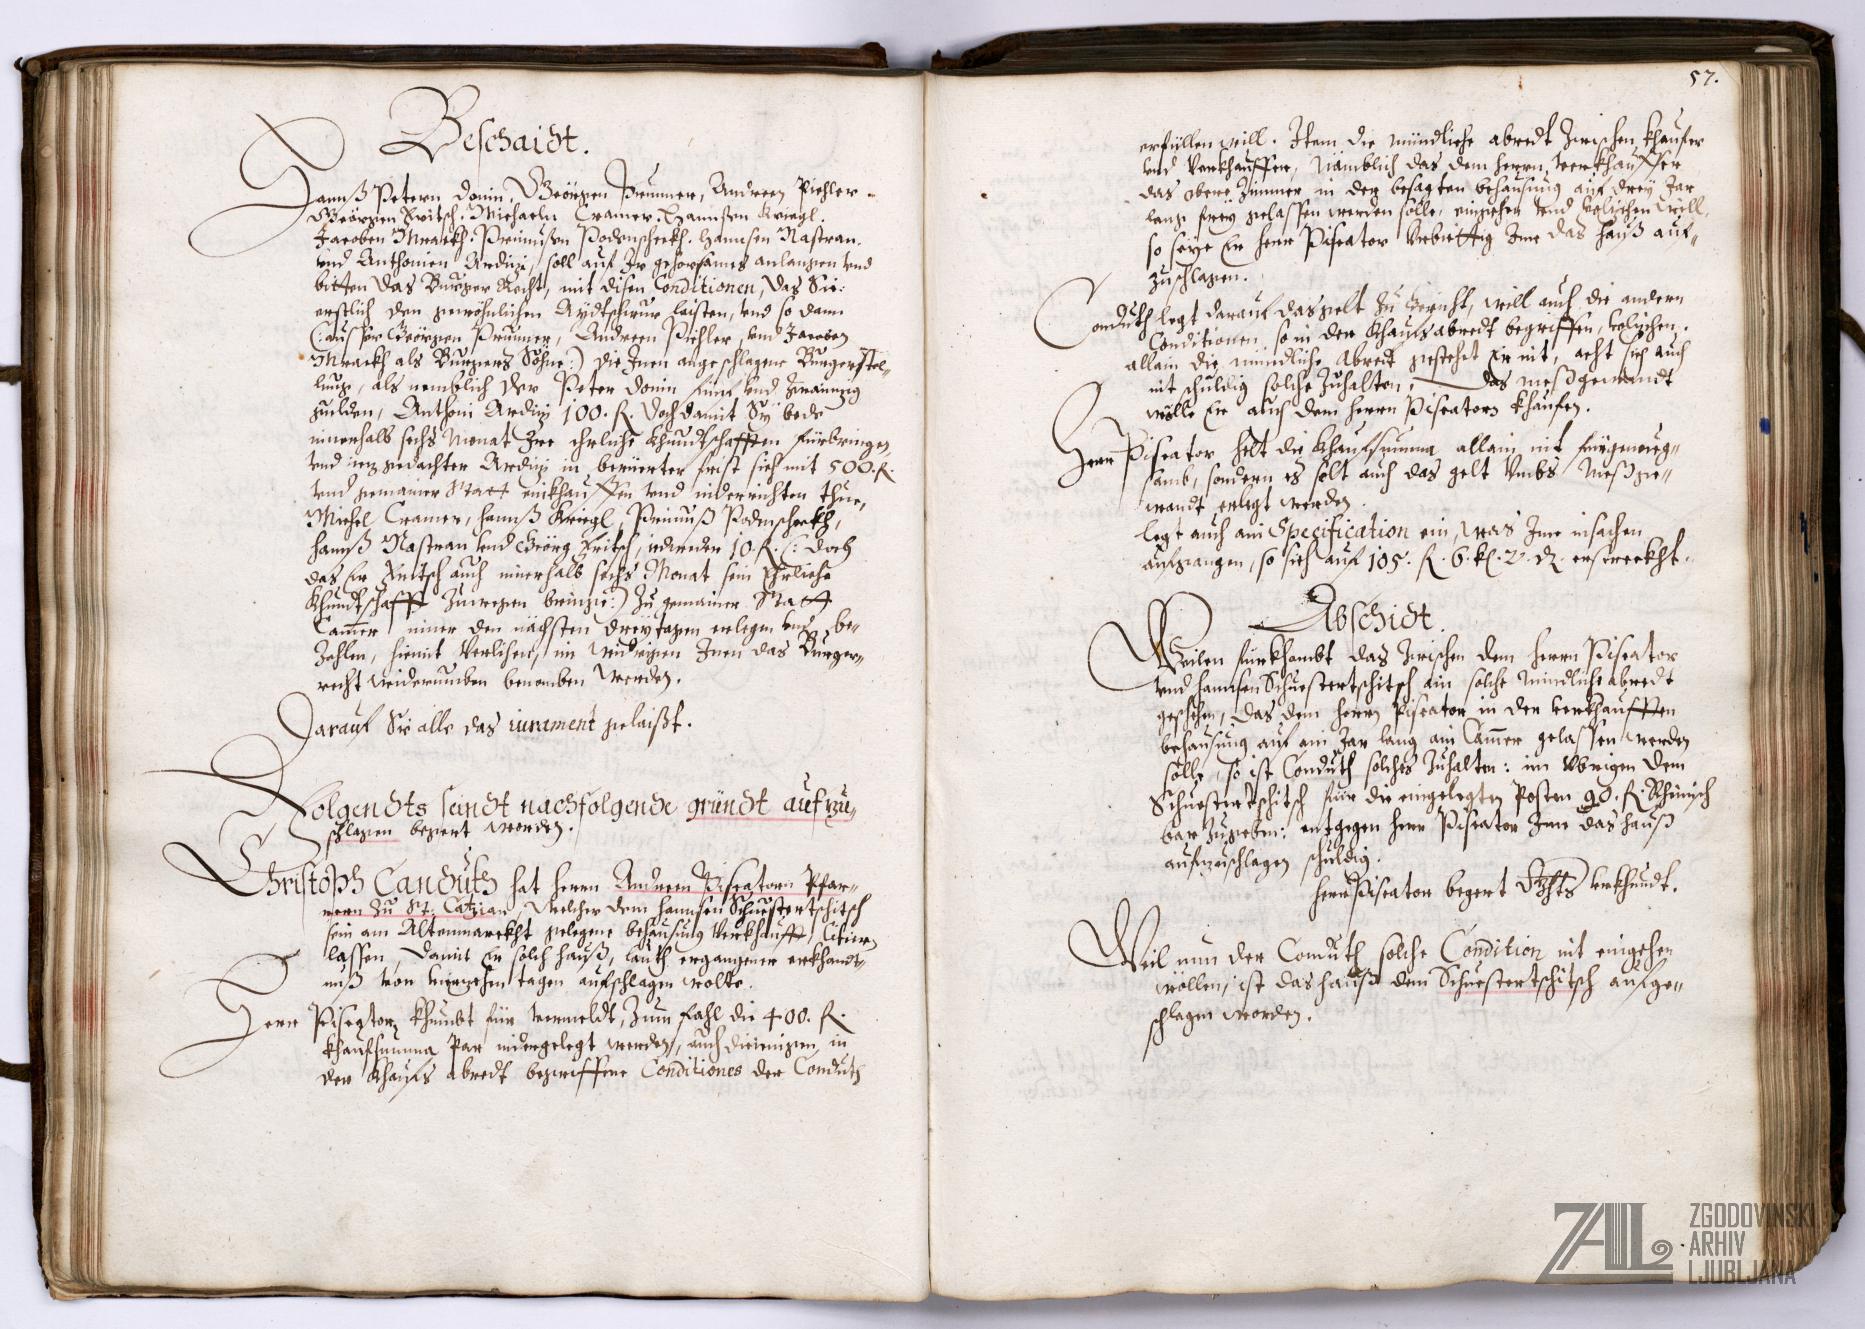 Beschaidt.
Hannß Petern Donin, Geörgen Prunner, Andreen Pichler
Geörgen Fritsch, Michaeln Cramer, Hannsen Kriegl,
Jacoben Mrackh, Primusen Podnscheckh, Hannsen Nastran,
vnd Anthonien Ardinj, soll auf Jr gehorsames anlangen vnd
bitten das Burger Recht, mit disen Conditionen, das Sie
erstlich den gewöhnlichen Aydtschwur laisten, vnd so dann
(:ausser Geörgen Prunner, Andreen Pichler, vnd Jacoben
Mrackh als Burgers Söhne:) die Jnen angeschlagene Burgerstel-
lung, als nemblich der Peter Donin fünf vnd zwainzig
gulden, Anthoni Ardinj 100. fl. doch damit Sy bede
innerhalb sechs Monat Jre ehrliche Khundtschafften fürbringen,
vnd gedachter Ardinj in berüerter frist sich mit 500. fl.
vnd gemainer Statt einkhauffen vnd niderrichten thue,
Michel Cramer, Hannß Kriegl, Primuß Podnscheckh,
Hannß Nastran vnd Geörg Fritsch, iedweder 10. fl. (: doch
das Er Fritsch auch innerhalb sechs Monat sein Ehrliche
Khundtschafft zuwegen bringe:) zu gemainer Statt
Camer inner den nächsten dreÿ tagen erlegen vnd be-
zahlen, hiemit verlihen, im widrigen Jnen das Burger-
recht widerumben benomben werden.
Darauf Sie alle das iurament gelaißt.
Volgendts seindt nachfolgende gründt aufzu-
schlagen begert worden.
Christoph Canduth hat herrn Andreen Piscatorn Pfar-
rern zu St. Catzian, welcher dem Hannsen Schuestertschitsch
sein am Altenmarckht gelegene behausung verkhaufft, Citiern
lassen, damit Er solch hauß, lauth ergangener erkhandt-
nuß von vierzehn tagen aufschlagen wolte.
Herr Piscator khumbt für vermeldt, zum fahl die 400. fl.
khaufsumma Par nidergelegt werden, auch dieienigen in
der khaufs abredt begriffene Conditiones der Conduth
57.
erfüllen will. Item die mündliche abredt zwischen khaufer
vnd Verkhauffer, Nämblich das dem herrn verkhauffer
das obere Zimmer in der besagten behausung auf dreÿ Jar
lang freÿ gelassen werden solle, eingehen vnd volziehen will,
so seÿe Er herr Piscator vrbiettig Jme das hauß auf-
zuschlagen.
Conduth legt darauf das gelt zu Gericht, will auch die andern
Conditionen, so in der khaufsabredt begriffen, volziehen,
allain die mündliche abredt gestehet Er nit, acht sich auch
nit schuldig solche zuhalten, das meßgewandt
wölle Er auch dem herrn Piscatorn khaufen.
Herr Piscator helt die khaufsumma allain nit für genueg-
samb, sondern es solt auch das gelt vmbs Meßge-
wandt erlegt werden.
legt auch ain Specification ein, was Jme insachen
aufgangen, so sich auf 105. fl. 6. kr. 2. d. erstreckht.
Abschidt.
Weilen fürkhombt das zwischen dem herrn Piscator
vnd Hannsen Schuestertschitsch ain solche Mündliche abredt
geschehen, das dem herrn Piscator in der verkhaufften
behausung auf ain Jar lang ain Camer gelassen werden
solle, so ist Conduth solches zuhalten: im Vbrigen dem
Schuestertschitsch für die eingelegten Posten 90. fl. Rheinisch
bar zugeben: entgegen herr Piscator Jme das hauß
aufzuschlagen schuldig.
herr Piscator begert verkhundt.
Weil nun der Conduth solche Condition nit eingehen
wöllen, ist das hauß dem Schuestertschitsch aufge-
schlagen worden.
ZAL
ZGODOVINSKI
ARHIV
LJUBLJANA